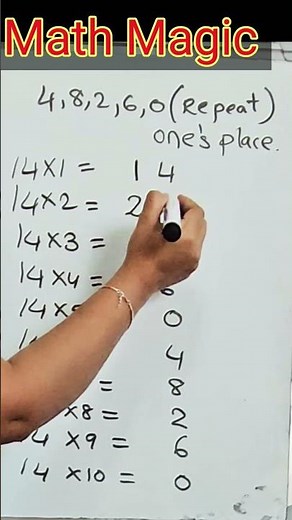 Math Magic
4,8,2,6,0 (Repeat)
one's place.
14×1 = 14
14×2 = 2
14×3 =
14×4 = 6
14×5 0
4
= 8
×8 = 2
14 ×9 = 6
14 ×10 = 0